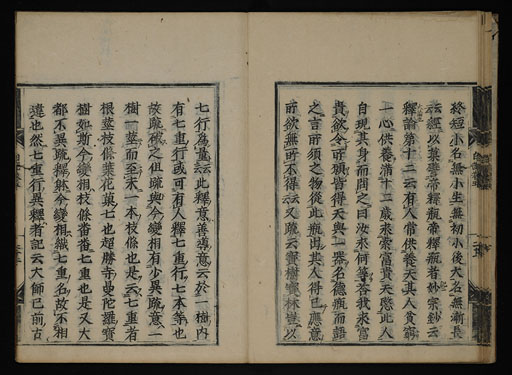 終短小名無小生無初小後大名無漸長
云經以葉帝釋瓶帝釋瓶者妙宗鈔云
釋論第十二云有人常供養天其人貧窮
一心供養滿十二歲求索富貴天愍此人
自現其身而問之曰汝求何等答我求富
貴欲令所願皆得天與一器名德瓶而語
之言所須之物從此瓶出其人得已應意
所欲無所不得云又疏云寶樹寶林等以
七行為量云此釋意善導意云於一樹內
有七重行或可有人釋七重行七本等也
故疏破之但疏與今變相有少異疏意一
樹一莖而至末一本枝條也是云七重者
根莖枝條葉花菓七也超勝寺曼陀羅寶
樹如斯今變相枝條番番七重也是又大
都不異疏釋然今變相織七重名故不相
違也然七重行異釋者記云大師已前古